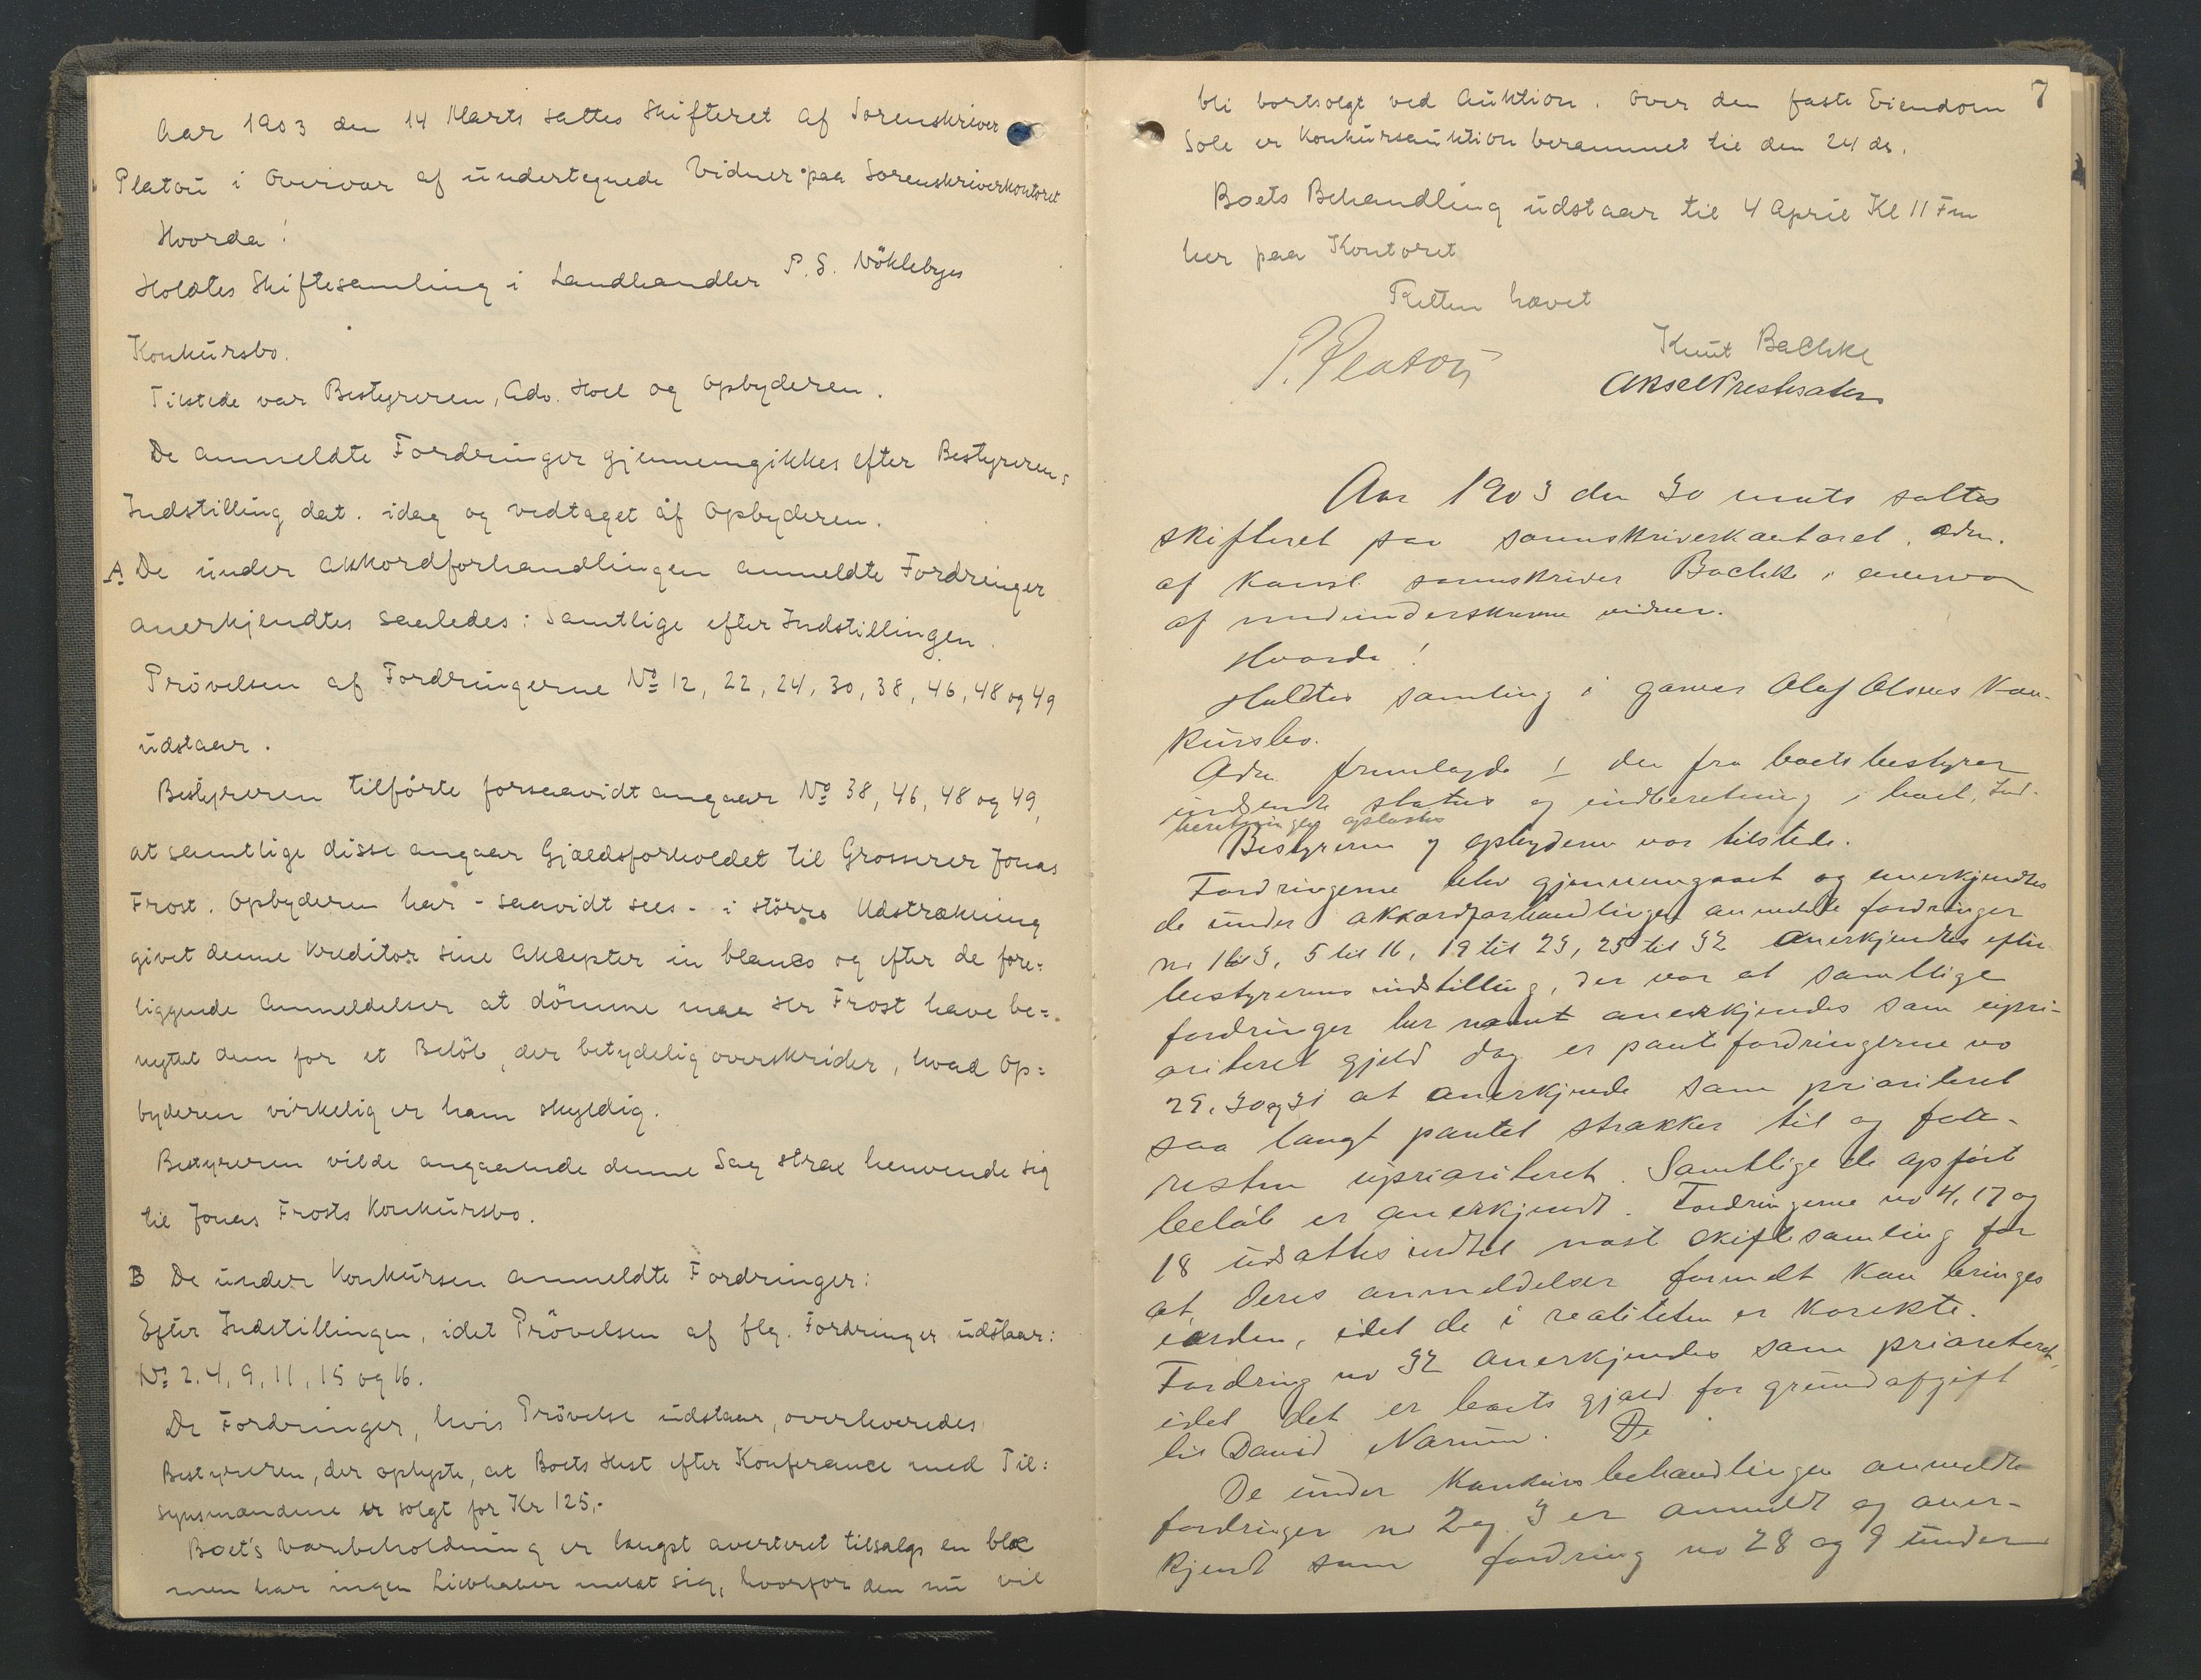 Aar 1903 den 14 Marts sattes Skifteret af Sorenskriver
Platou i Overvær af undertegnede Vidner paa Sorenskriverkontoret
Hvorda!
Holdtes Skiftesamling i Landhandler P. S. Nöklebyes
Konkursbo.
Tilstede var Bestyreren, Adv. Hoel og Opbyderen.
De anmeldte Fordringer gjennemgikkes efter Bestyrerens
Indstilling dat. idag og vedtaget af Opbyderen.
A De under Akkordforhandlingen anmeldte Fordringer
anerkjendtes saaledes: Samtlige efter Indstillingen.
Prövelsen af Fordringerne No 12, 22, 24, 30, 38, 46, 48 og 49
udstaar.
Bestyreren tilförte forsaavidt angaar No 38, 46, 48 og 49,
at samtlige disse angaar Gjældsforholdet til Grosserer Jonas
Frost. Opbyderen har - saavidt sees - i större Udstrækning
givet denne Kreditor sine Akcepter in blanco og efter de fore=
liggende Anmeldelser at dömme maa Hr Frost have be=
nyttet dem for et Belöb, der betydelig overskrider, hvad Op=
byderen virkelig er ham skyldig.
Bestyreren vilde angaaende denne Sag strax henvende sig
til Jonas Frosts Konkursbo.
B De under Konkursen anmeldte Fordringer:
Efter Indstillingen, idet Prövelsen af flg. Fordringer udstaar:
No 2. 4, 9, 11, 15 og 16.
De Fordringer, hvis Prövelse udstaar, overleveredes
Bestyreren, der oplyste, at Boets Hest efter Konferance med Til=
synsmændene er solgt for Kr 125,-
Boet's Varebeholdning er længst averteret tilsalgs en bloc
men har ingen Liebhaber meldt sig, hvorfor den nu vil
7
bli bortsolgt ved Auktion. Over den faste Eiendom
Sole er Konkursauktion berammet til den 24 ds.
Boets Behandling udstaar til 4 April Kl 11 Fm
her paa Kontoret
Retten hævet
P. Platou
Knut Bachke
Aksel Prestesater
Aar 1903 den 30 marts sattes
skifteret paa sorenskriverkontoret, adm.
af konst. sorenskriver Bachke i overvær
af medunderskrevne vidner.
Hvorda!
Holdtes samling i garver Olaf Olsens kon-
kursbo.
Adm. fremlagde 1 den fra boets bestyrer
indsendte status og indberetning i boet. Ind-
beretningen oplæstes
Bestyreren og opbyderen var tilstede.
Fordringerne blev gjennemgaaet og anerkjendtes
de under akkordforhandlingen anmeldte fordringer
no 1 til 3, 5 til 16, 19 til 23, 25 til 32 anerkjendtes efter
bestyrerens indstilling, der var at samtlige
fordringer her nævnt anerkjendes som upri-
oriteret gjeld dog er pantefordringerne no
29, 30 og 31 at anerkjende som prioriteret
saa langt pantet strækker til og for
resten uprioriteret. Samtlige de opført
beløb er anerkjendt. Fordringerne no 4, 17 og
18 udsattes indtil næst skiftesamling for
at deres anmeldelser formelt kan bringes
iorden, idet de i realiteten er korekte.
Fordring no 32 anerkjendes som prioriteret,
idet det er boets gjæld for grundafgift
til David Narum. De
De under konkursbehandlingen anmeldte
fordringer no 2 og 3 er anmeldt og aner-
kjendt som fordring no 28 og 9 under